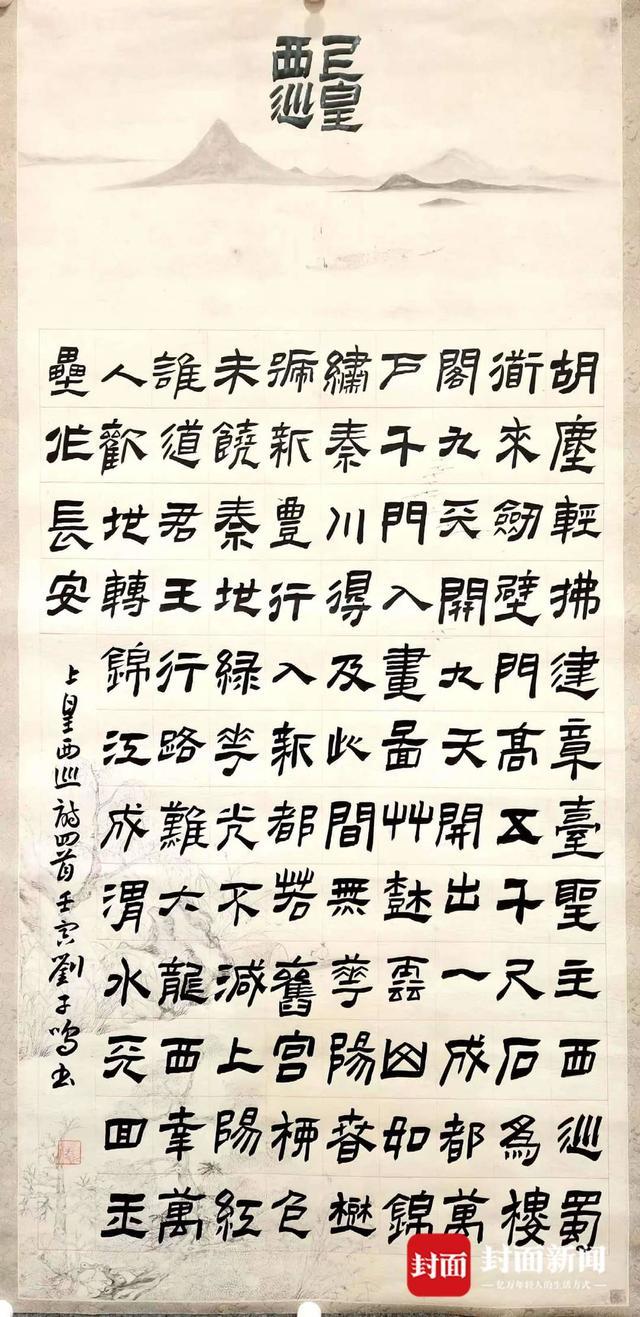 上皇西巡
胡塵輕拂建章臺聖主西巡蜀
衜來劒壁門高五千尺石為樓
閣九天開九天開出一成都萬
戶千門入畫啚艸樹雲山如錦
繡秦川得及此間無華陽春樹
號新豐行入新都若舊宮柳色
未饒秦地綠花光不減上陽紅
誰道君王行路難六龍西幸萬
人歡地轉錦江成渭水天回玉
壘作長安
上皇西巡詩四首壬寅劉子鳴書
封面 封面新闻
亿万年轻人的生活方式